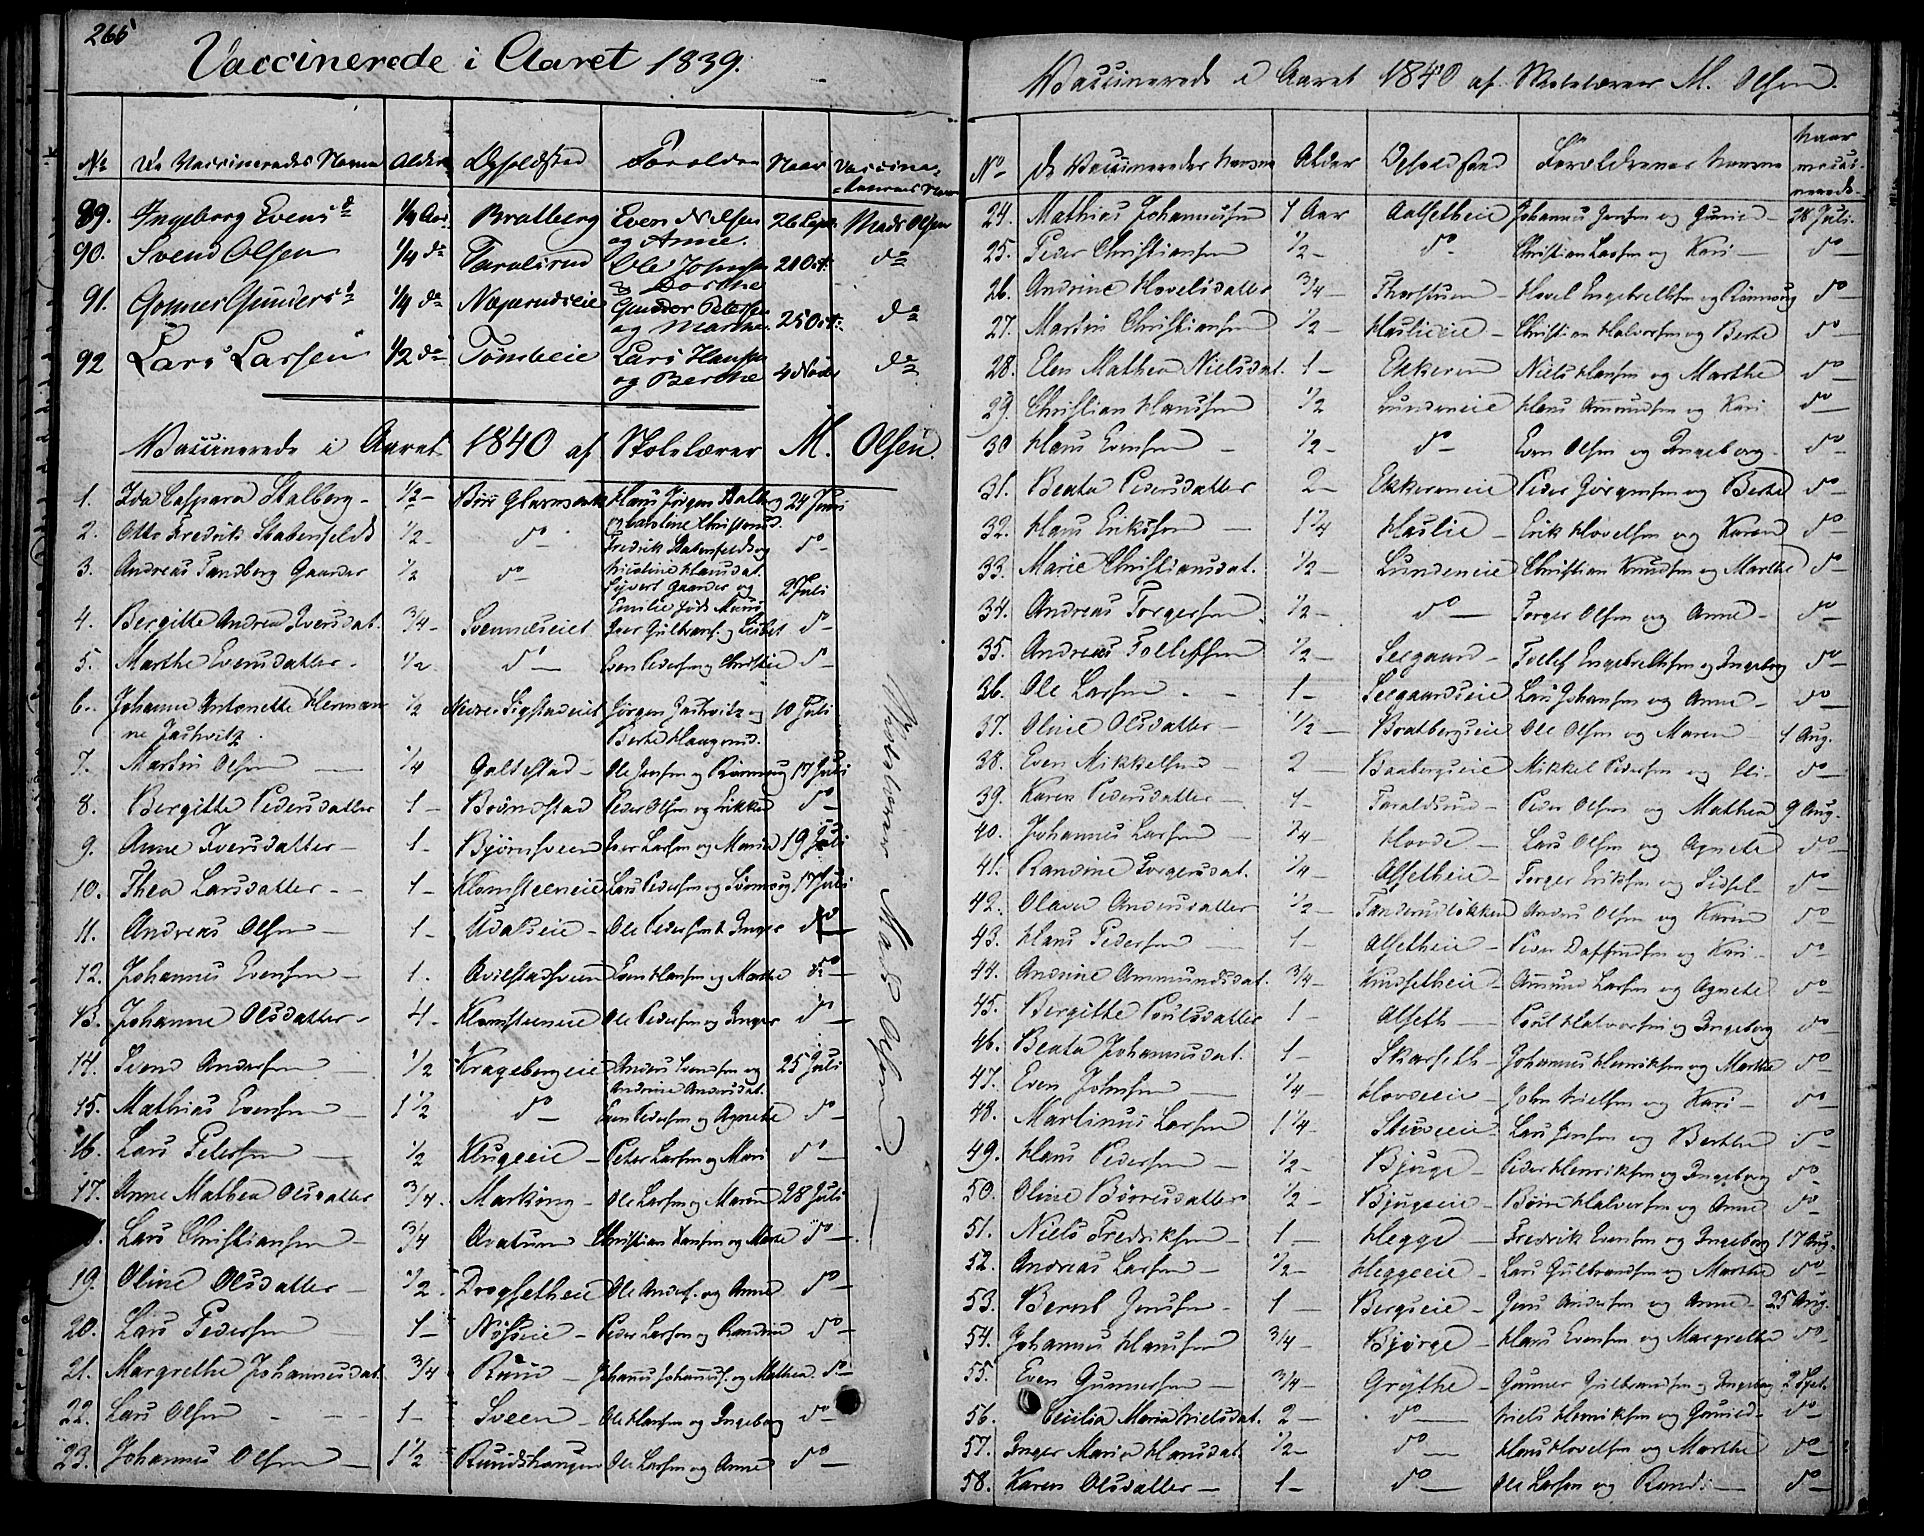 266
Vaccinerede i Aaret 1839.
No De Vaccineredes Navne Alder Opholdssted Forældre Naar Vaccina-
teurens Navn
89. Ingeborg Evensd 1/4 Aar Bratberg Even Nilsen 26 Sept. Mads Olsen
og Anne.
90. Svend Olsen 1/4 do Taralsrud Ole Johnsen 21 Oct. do
& Dorthe
91. Gunders 1/4 do Næperudseie Gunder Petersen 25 Oct. do
og Marthe
92 Lars Larsen 1/2 do Tømteeie Lars Hansen 4 Novbr do
og Berthe
Vaccinerede i Aaret 1840 af Skolelærer M. Olsen.
1. Ida Caspara Stalberg - 1/2 - Biri Glasværk Hans Jørgen Stalberg 24 Juni
og Caroline
2. Otto Fredrik Stabenfeldt 1/2 - do - Fredrik Stabenfeldt og do -
Nicoline Hansdat.
3. Andreas Tandberg Gaarder 1/2 do - Syvert Gaarder og 2 Juli
Emilie
4. Bergitte Andrea Iversdat. 3/4 - Svennæseiet Iver Gulbrans. og Lisbet do -
5. Marthe Evensdatter - 1/2 - do - Even Pedersen og Christie do -
6. Johanne Antonette Herman 1/2 Nedre Sigstadeiet Jørgen Jachwitz og 10 Juli
ne Jachwitz. Berte Haagensd.
7. Martin Olsen - 1/4 Galtestad - Ole Jensen og Rønnoug 17 Juli
8. Bergitte Pedersdatter 1 - Brændstad Peder Olsen og Sikken do -
9. Anne Iversdatter - 1 - Bjørnsveen Iver Larsen og Maria 19 Juli
10. Thea Larsdatter - 1 - Klomsteeneie Lars Pedersen og Rønnoug 17 Juli
11. Andreas Olsen - 1 - Udalseie - Ole Pedersen & Inger do -
12. Johannes Evensen - 1. Avelstadsveen Even Hansen og Marthe do -
13. Johanne Olsdatter - 4 - Klomsteeneie Ole Pedersen og Inger do -
14. Svend Andersen - 1/2 Kragebergeie Anders Svendsen og 25 Juli
Andrine Andersdat.
15. Mathias Evensen - 1 1/2 do - Even Pedersen og Agnethe do -
16. Lars Petersen - 1/2 Klugeeie - Peter Larsen og Mari do -
17. Anne Mathea Olsdatter 3/4 - Markeng - Ole Larsen og Maren 28 Juli
Lars Christiansen 3/4 Avatuen - Christian Hansen og Marte do -
19. Oline Olsdatter - 1/2 - Dragsetheie Ole Anders. og Anne do -
20. Lars Pedersen - 1 - Nøsseie - Peder Larsen og Randine do -
21. Margrethe Johannesdat. 3/4 Ruud - Johannes Johannes. og Mathea do -
22. Lars Olsen - - 1 - Sveen - Ole Hansen og Ingeborg do -
23. Johannes Olsen - 1 1/2 Ruudshaugen Ole Larsen og Anne do -
Skolelærer Mads Olsen.
Vaccinerede i Aaret 1840 af Skolelærer M. Olsen.
No De Vaccineredes Navne Alder Opholdssted Forældrenes Navne Naar
vacci-
nerede
24. Mathias Johannesen 1 Aar Aalsetheie Johannes Jensen og Gunild - 28 Juli.
25. Peder Christiansen 1/2 - do - Christian Larsen og Kari - do -
26. Andrine Hovelsdatter 3/4 - Thorstuen - Hovel Engebrethsen og Rønnoug do -
27. Martin Christiansen 1/2 - Haslieeie - Christian Halvorsen og Berte do -
28. Elen Mathea Nielsdat. 1 - Ekkeren Niels Hansen og Marthe do -
29. Christian Hansen 1/2 Lundeneie Hans Amundsen og Kari do -
30 Hans Evensen - 1/2 - do - Even Olsen og Ingeborg - do -
31. Beata Pedersdatter 2 - Ekkereneie Peder Jørgensen og Berthe do -
32. Hans Eriksen - 1 1/4 Haslie - Erik Hovelsen og Karen do -
33. Marie Christiansdat. 1/2 - Lundeneie Christian Knudsen og Marthe do -
34. Andreas Torgersen 1/2 - do - Torger Olsen og Anne - do -
35. Andreas Tollefsen 1/2 - Seegaard - Tollef Engebrethsen og Ingeborg do -
36. Ole Larsen - 1 - Seegaardseie Lars Johansen og Anne - do -
37. Oline Olsdatter - 1/2 - Bratbergseie Ole Olsen og Maren - 1 Aug.
38. Even Mikkelsen - 2 - Baabergseie Mikkel Pedersen og Eli - do -
39. Karen Pedersdatter - 1 - Taraldsrud - Peder Olsen og Mathea 9 Aug.
40. Johannes Larsen - 1/4 - Hovde - Lars Olsen og Agnete do -
41. Randine Torgersdat. 1/4 - Alsetheie - Torger Eriksen og Sidsel - do -
42. Olava Andersdatter 1/2 - Tanderudløkken Anders Olsen og Karen do -
43. Hans Pedersen - 1 - Alsetheie - Peder Daffinsen og Kari - do -
44. Andrine Ammundsdat. 3/4 - Knudsetheie - Amund Larsen og Agnete do -
45. Bergithe Poulsdatter 1 - Alseth - Poul Halvorsen og Ingeborg do -
46. Beata Johannesdat. 1 - Skarseth - Johannes Henriksen og Marthe do -
47. Even Johnsen - 1/4 - Hovdeeie - John Nielsen og Kari - do -
48. Martinus Larsen 1 1/4 - Skuveeie - Lars Jensen og Berthe do -
49. Hans Pedersen - 1/2 - Bjuge - Peder Henriksen og Ingeborg do -
50. Oline Børresdatter 1/2 - Bjugeeie - Børre Halvorsen og Anne do -
51. Niels Fredriksen - 1 - Hegge - Fredrik Evensen og Ingeborg 17 Aug.
52. Andreas Larsen - 1/2 - Heggeeie - Lars Gulbrandsen og Marthe do -
53. Bernt Jensen - 1 - Bergseie - Jens Andersen og Anne - 25 Aug.
54. Johannes Hansen 3/4 - Bjørge - Hans Evensen og Margrethe do -
55. Even Gunnersen - 3/4 - Grythe - Gunner Gulbrandsen og Ingeborg 2 Sept.
56. Cecilia Maria Nielsdat. 2 - do - Niels Henriksen og Gunild - do -
57. Inger Marie Hansdat. 1/2 - do - Hans Hovelsen og Marthe do -
58. Karen Olsdatter - 1 - do - Ole Larsen og Randi - do -